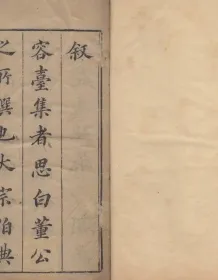 叙
容臺集者思白董公
之所撰也大宗伯典